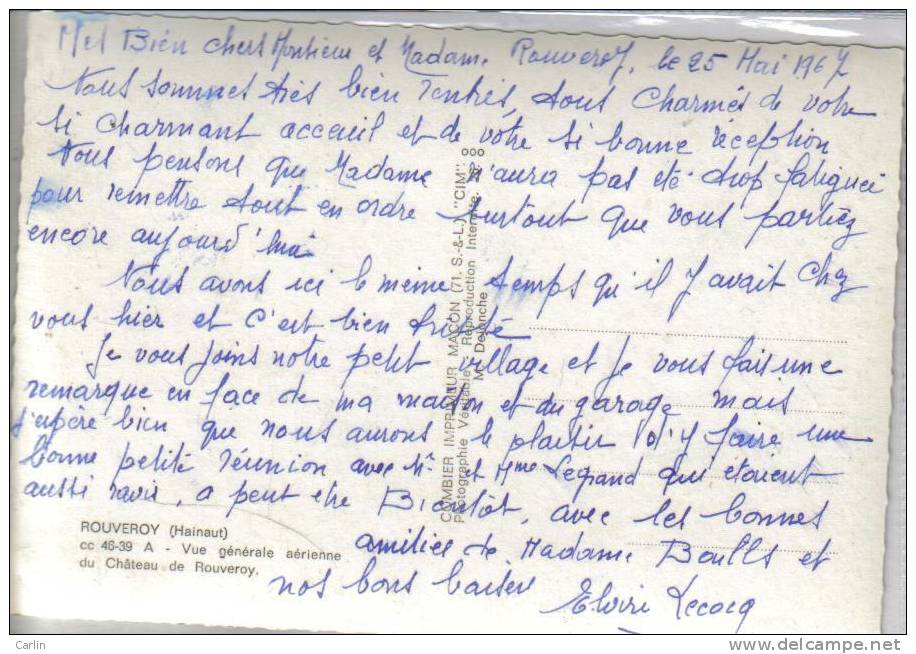 Mes Bien chers Monsieur et Madame, Rouveroy, le 25 Mai 1967
Nous sommes très bien rentrés, tous charmés de votre
si charmant acceuil et de votre si bonne réception
Nous pensons que Madame n'aura pas été trop fatiguée
pour remettre tout en ordre surtout que vous partiez
encore aujourd'hui
Nous avons ici le même temps qu'il y avait chez
vous hier et c'est bien triste
Je vous joins notre petit village et je vous fais une
remarque en face de ma maison et du garage mais
j'espère bien que nous aurons le plaisir d'y faire une
bonne petite réunion avec Mr et Mme Legrand qui étaient
aussi ravis, a peut etre Bientôt, avec les bonnes
amitiés de Madame et
nos bons baisers
Elvire Lecocq
ROUVEROY (Hainaut)
cc 46-39 A - Vue générale aérienne
du Château de Rouveroy.
COMBIER IMPRIMEUR MACON (71. S.-&-L.) "CIM"
Photographie Véritable - Reproduction Interdite.
M. Dejonche
Carlin
delcampe.net